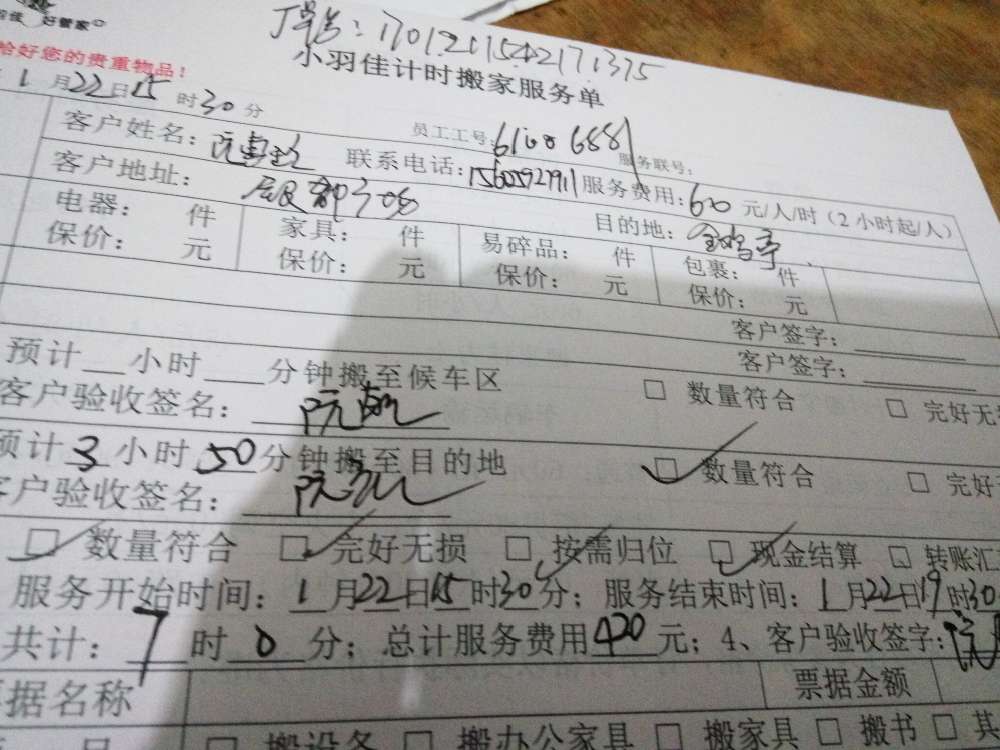 好管家
订单号：17012101542171375
小羽佳计时搬家服务单
给好您的贵重物品！
1月22日15时30分
员工工号：61006881 服务联号：
客户姓名： 联系电话：1560592911 服务费用：60 元/人/时（2小时起/人）
客户地址： 目的地：金鸡亭
电器： 件 家具： 件 易碎品： 件 包裹： 件
保价： 元 保价： 元 保价： 元 保价： 元
客户签字：
客户签字：
预计 小时 分钟搬至候车区 □ 数量符合 □ 完好无
客户验收签名：
预计3小时50分钟搬至目的地 □ 数量符合 □ 完好
客户验收签名：
□ 数量符合 □ 完好无损 □ 按需归位 □ 现金结算 □ 转账汇
服务开始时间：1月22日15时30分；服务结束时间：1月22日19时30
共计：7时0分；总计服务费用420元；4、客户验收签字：
票据名称 票据金额
□ 搬设备 □ 搬办公家具 □ 搬家具 □ 搬书 □ 其